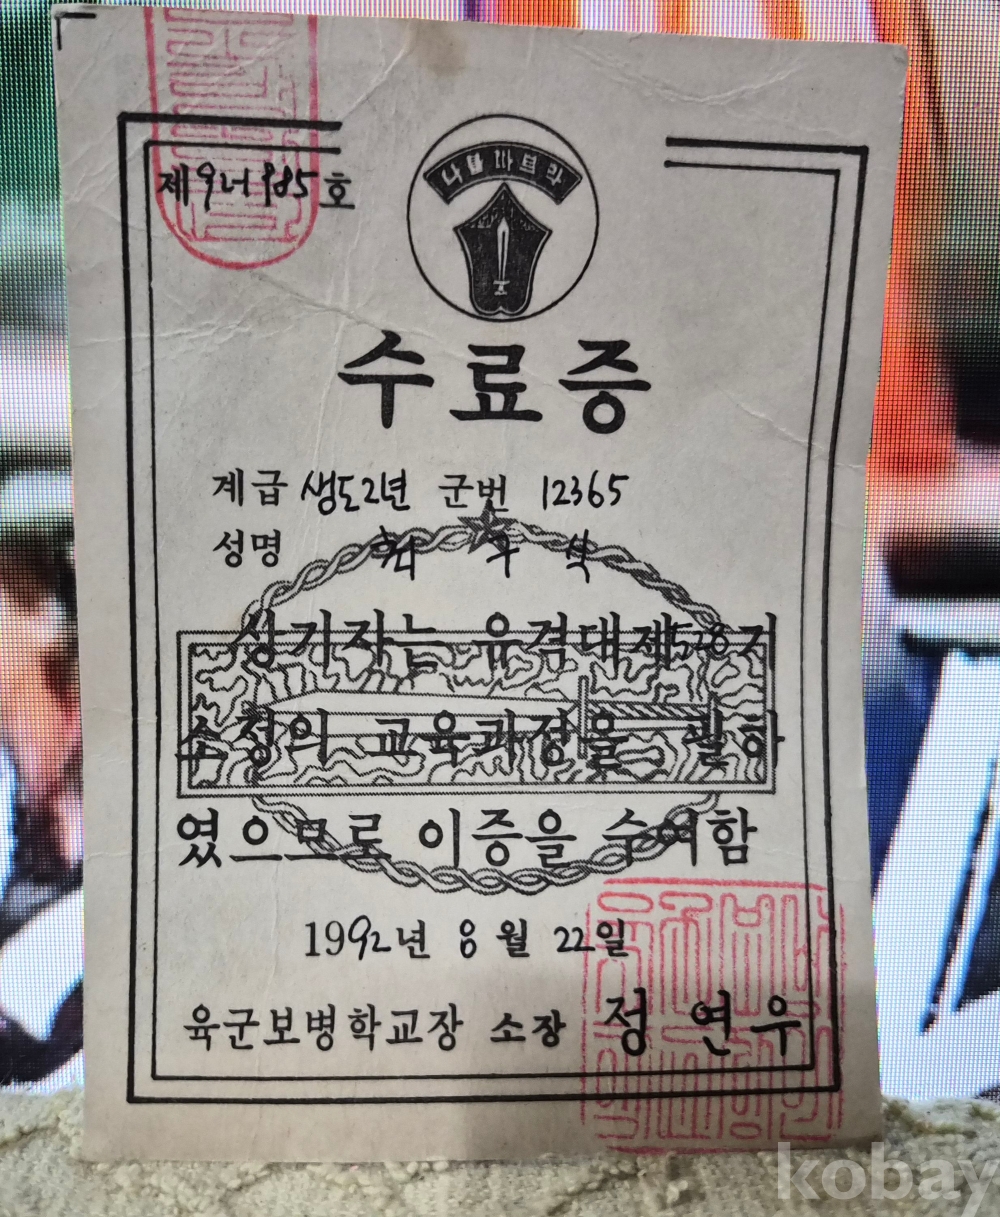 제92-1985호
수료증
계급 생도2년 군번 12365
성명 우석
상기자는 유격대제528기
소정의 교육과정을 필하
였으므로 이증을 수여함
1992년 8월 22일
육군보병학교장 소장 정연우
kobay